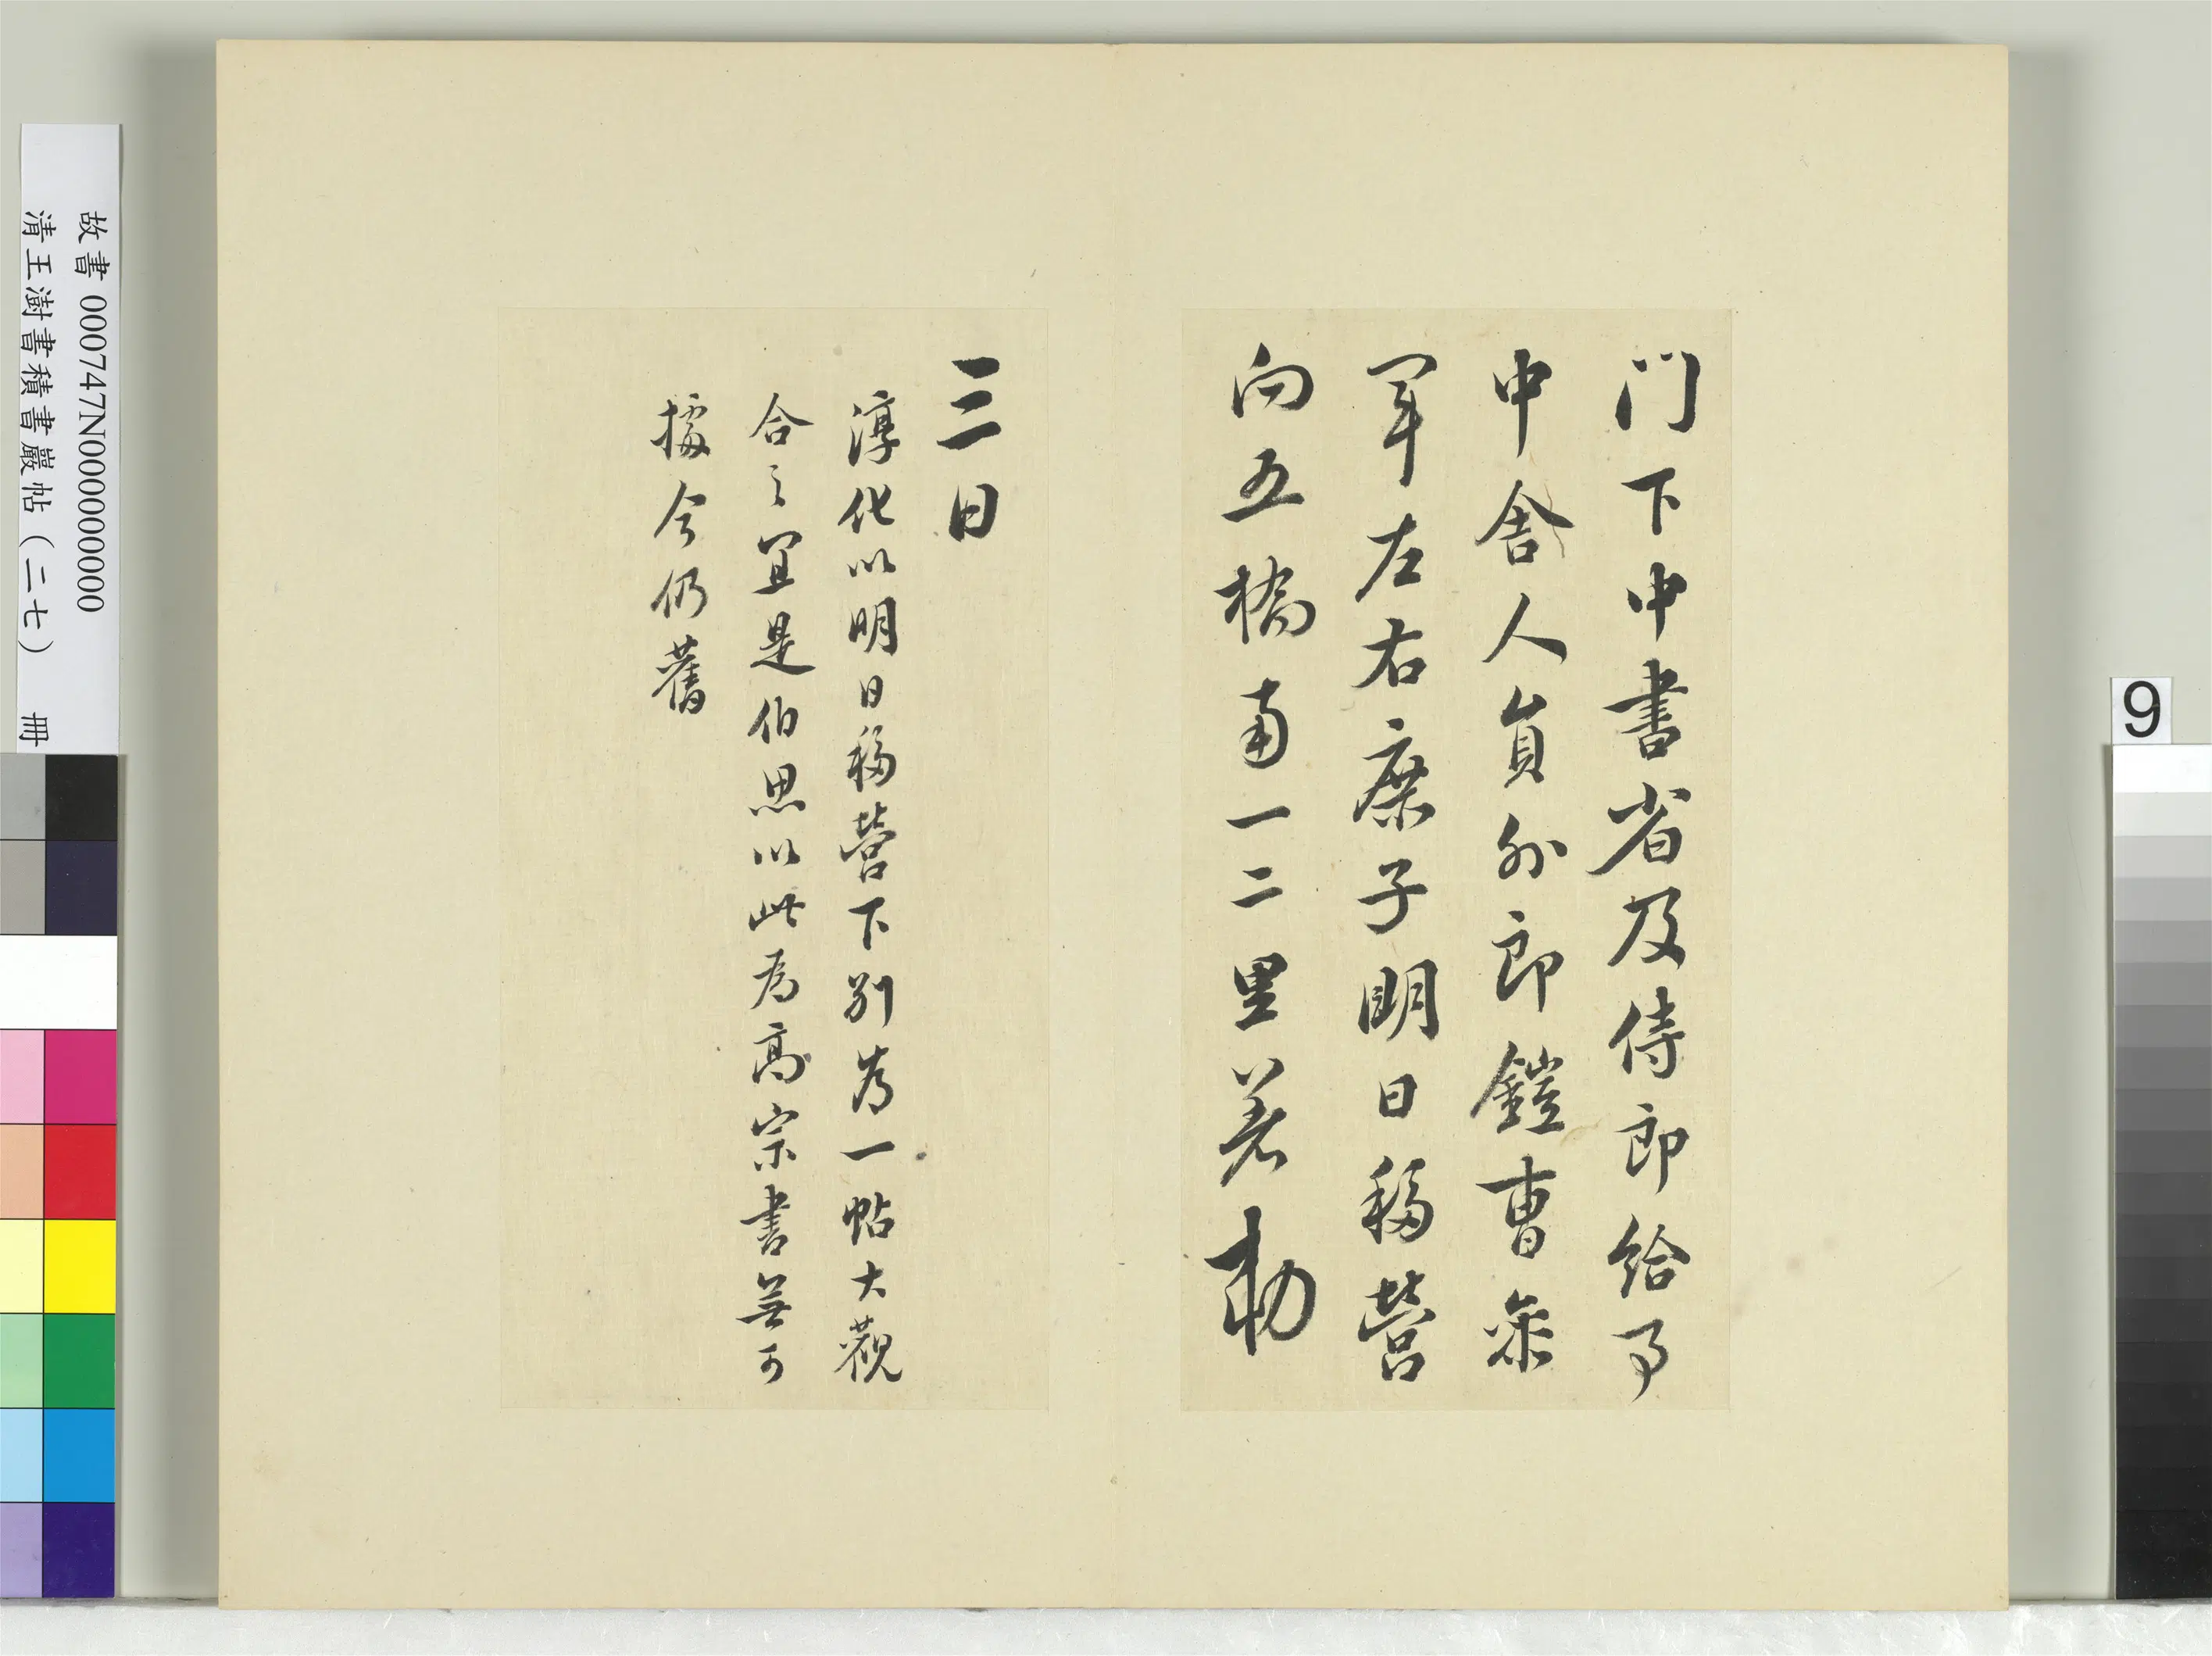 门下中書省及侍郎給事
中舍人員外郎鎧曹叅
軍左右庶子明日移營
向五橋南一二里着勅
三日
淳化以明日移營下别為一帖大觀
合之宜是伯思以此為高宗書無可
據今仍舊
故書 000747N000000000
清王澍書積書巖帖(二七) 冊
9